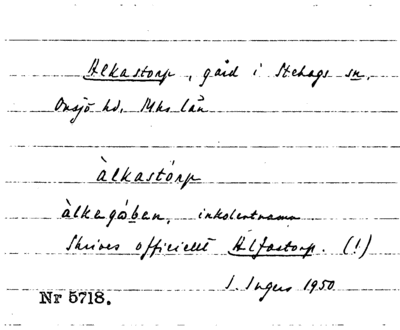 Alkastorp, gård i Stehags sn,
Onsjö hd, Mhs län
àlkastórp
àlkagóban, inkolentnamn
Skrives officiellt Alfastorp. (!)
I. Ingers 1950
Nr 5718.